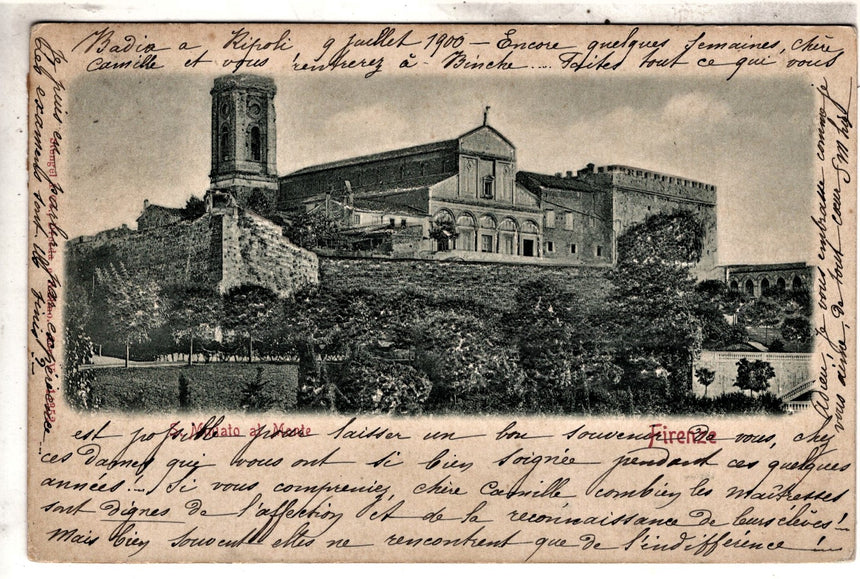 Badia a Ripoli 9 juillet 1900 — Encore quelques semaines, chère
Camille et vous rentrerez à Binche.... Faites tout ce que vous
S. Miniato al Monte
Firenze
est possible pour laisser un bon souvenir de vous, chez
ces Dames qui vous ont si bien soignée pendant ces quelques
années!... Si vous compreniez, chère Camille combien les maîtresses
sont dignes de l'affection et de la reconnaissance de leurs élèves!
Mais bien souvent elles ne rencontrent que de l'indifférence!...
Je puis en parler par expérience...
Les examens sont-ils finis?
Adieu, je vous embrasse comme je
vous aime, de tout cœur